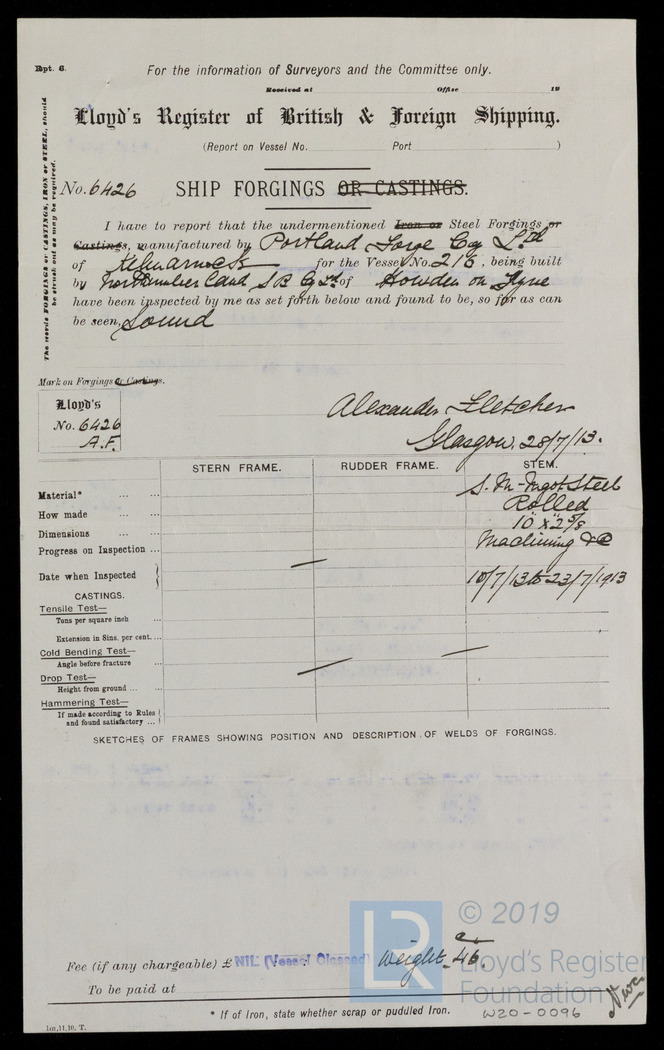 Rpt. 6.
For the information of Surveyors and the Committee only.
Received at Office 19
Lloyd's Register of British & Foreign Shipping.
(Report on Vessel No. Port )
The words FORGINGS or CASTINGS, IRON or STEEL, should
be struck out as may be required.
No. 6426 SHIP FORGINGS OR CASTINGS.
I have to report that the undermentioned Iron or Steel Forgings or
Castings, manufactured by Portland Forge Coy Ltd
of Kilmarnock for the Vessel No. 216, being built
by Northumberland S B Coy Ld of Howden on Tyne
have been inspected by me as set forth below and found to be, so far as can
be seen, Sound
Mark on Forgings or Castings.
Lloyd's
No. 6426
A.F.
Alexander Fletcher
Glasgow. 28/7/13.
STERN FRAME. RUDDER FRAME. STEM.
Material* ... ... S. M-Ingot Steel
How made ... ... Rolled
Dimensions ... ... 10" x 2 5/8"
Progress on Inspection ... Machining &c
Date when Inspected 10/7/13 to 23/7/1913
CASTINGS.
Tensile Test—
Tons per square inch ...
Extension in 8ins. per cent. ...
Cold Bending Test—
Angle before fracture ...
Drop Test—
Height from ground ... ...
Hammering Test—
If made according to Rules
and found satisfactory ...
SKETCHES OF FRAMES SHOWING POSITION AND DESCRIPTION OF WELDS OF FORGINGS.
© 2019
LR
Lloyd's Register
Foundation
Fee (if any chargeable) £ NIL (Vessel Classed) Weight 46.
To be paid at
* If of Iron, state whether scrap or puddled Iron.
W20-0096
Nwc
1m,11,10. T.